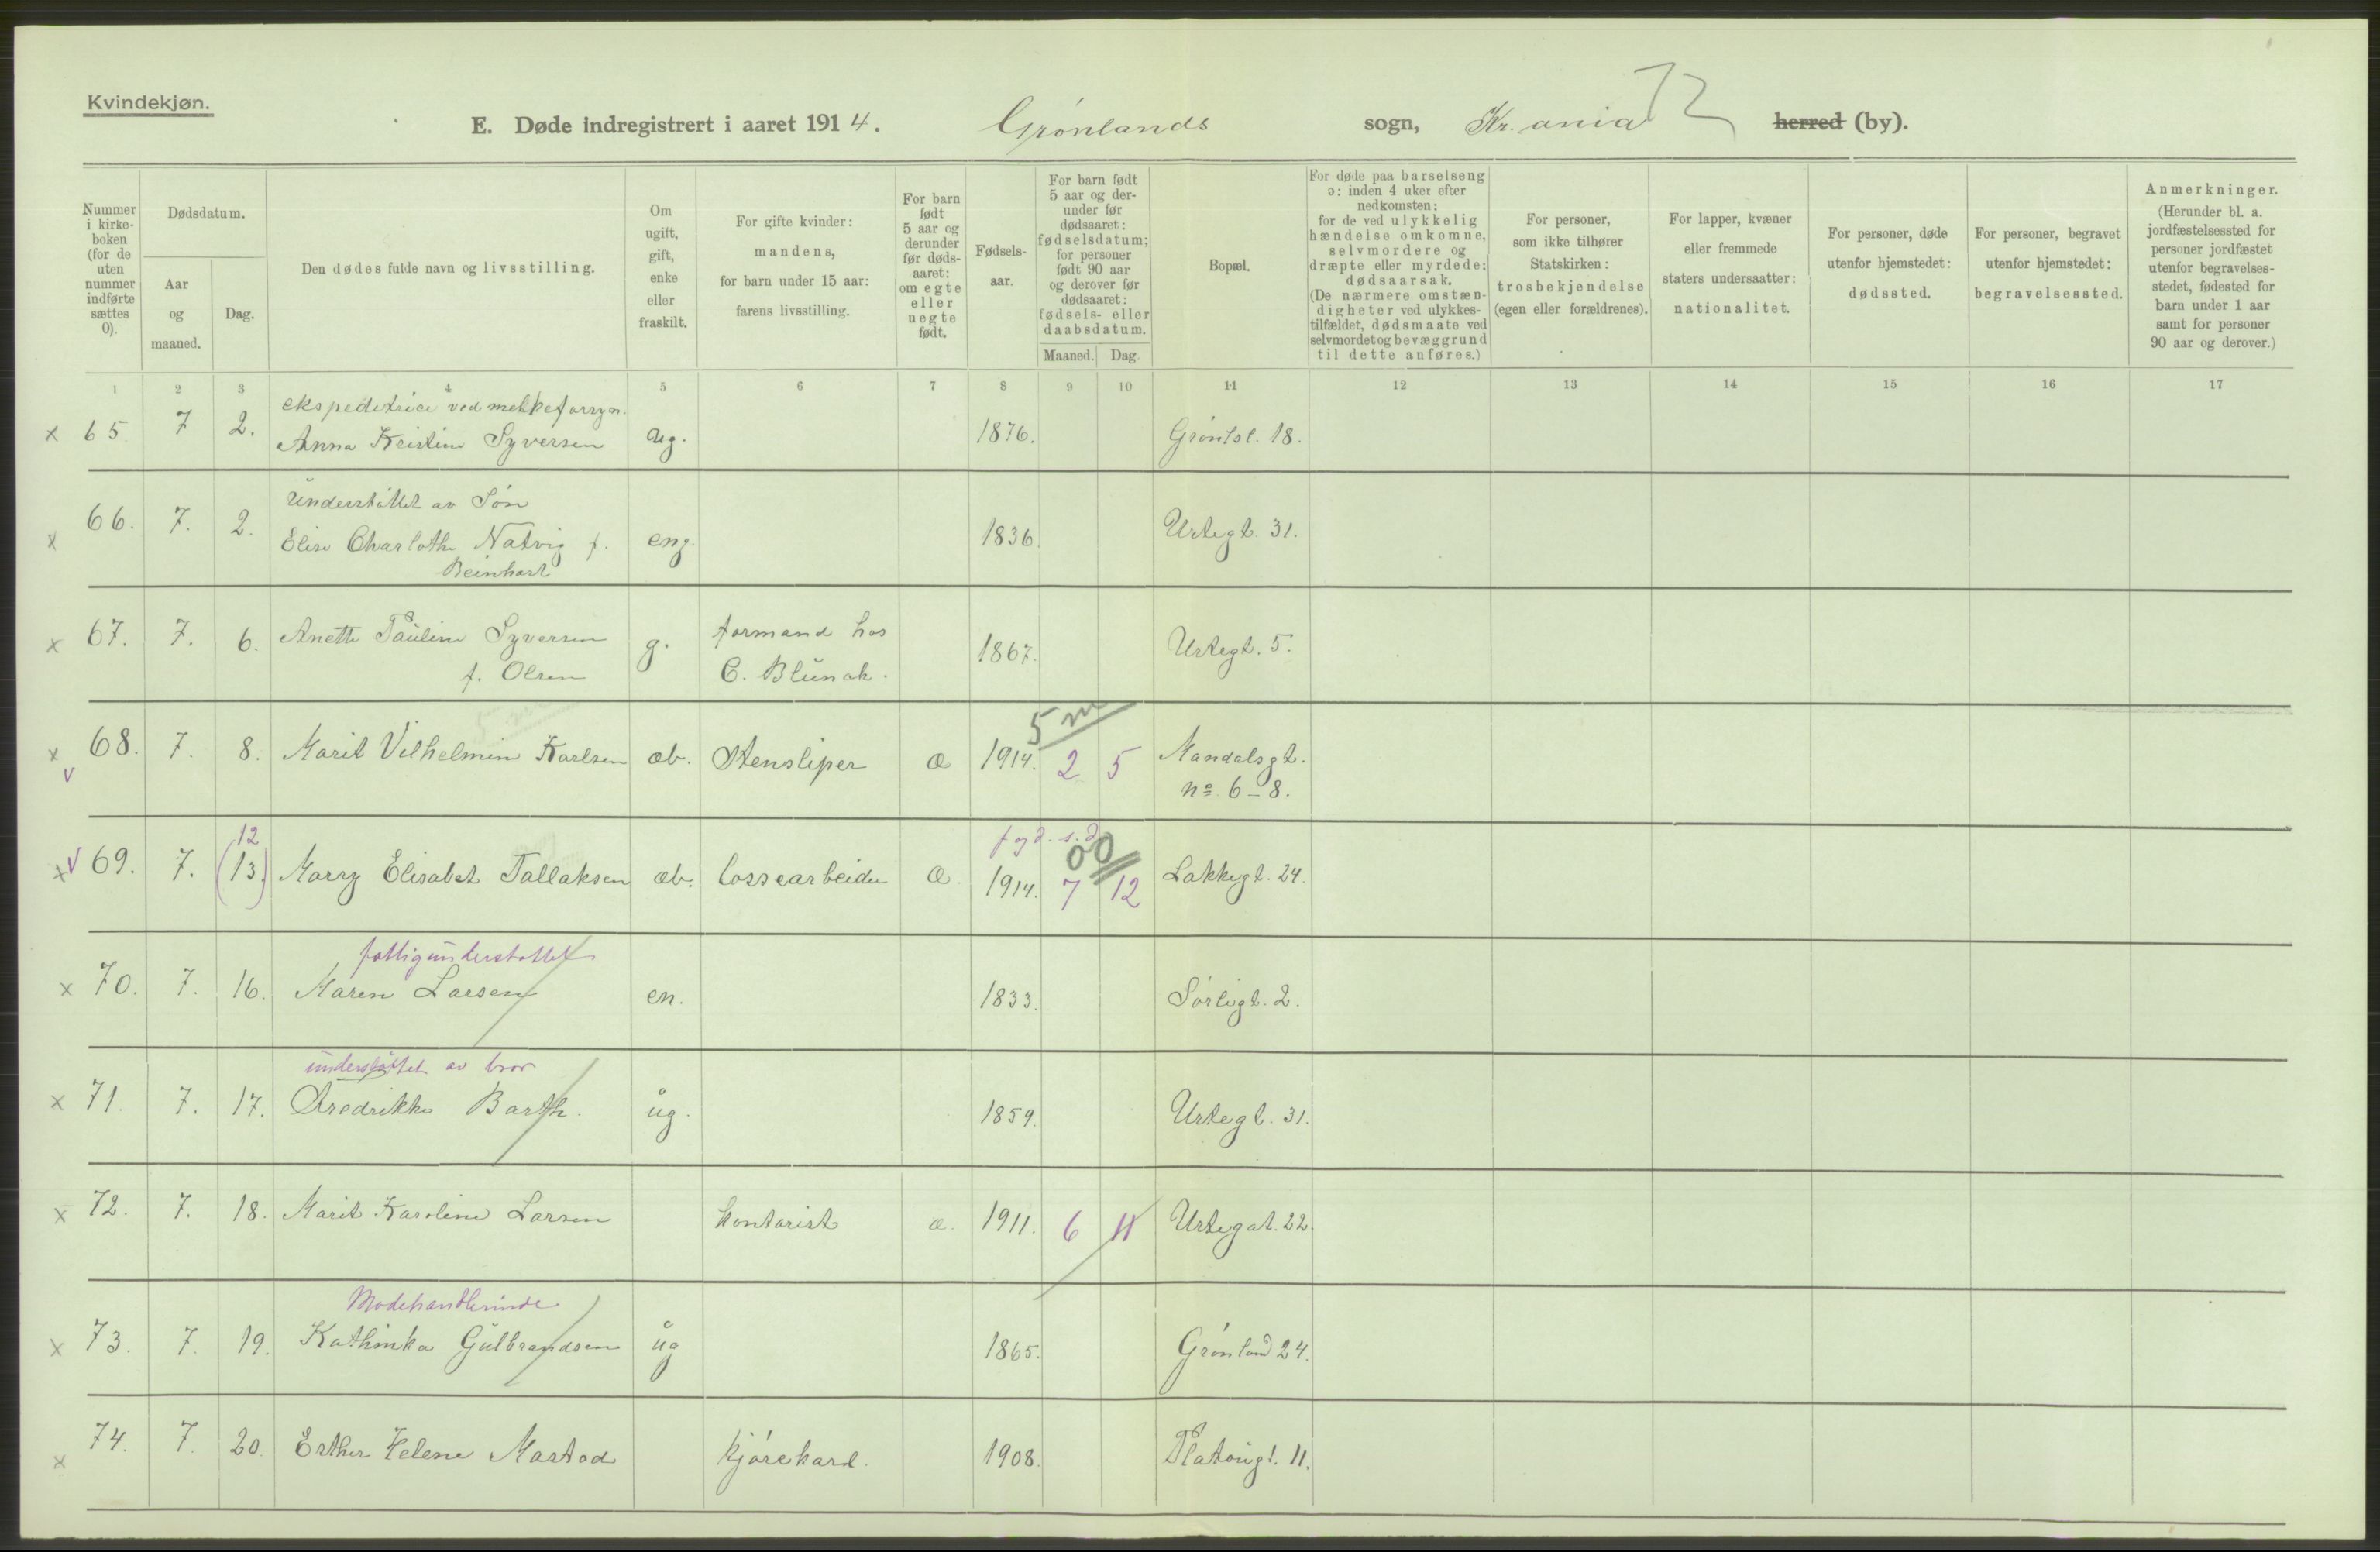 Kvindekjøn.
E. Døde indregistrert i aaret 1914. Grønlands sogn, Kr.ania herred (by).
Nummer i kirkeboken (for de uten nummer indførte sættes 0).
Dødsdatum.
Aar og maaned.
Dag.
Den dødes fulde navn og livsstilling.
Om ugift, gift, enke eller fraskilt.
For gifte kvinder: mandens, for barn under 15 aar: farens livsstilling.
For barn født 5 aar og derunder før dødsaaret: om egte eller uegte født.
Fødselsaar.
For barn født 5 aar og derunder før dødsaaret: fødselsdatum; for personer født 90 aar og derover før dødsaaret: fødsels- eller daabsdatum.
Maaned. Dag.
Bopæl.
For døde paa barselseng ɔ: inden 4 uker efter nedkomsten: for de ved ulykkelig hændelse omkomne, selvmordere og dræpte eller myrdede: dødsaarsak. (De nærmere omstændigheter ved ulykkestilfældet, dødsmaate ved selvmordet og bevæggrund til dette anføres.)
For personer, som ikke tilhører Statskirken: trosbekjendelse (egen eller forældrenes).
For lapper, kvæner eller fremmede staters undersaatter: nationalitet.
For personer, døde utenfor hjemstedet: dødssted.
For personer, begravet utenfor hjemstedet: begravelsessted.
Anmerkninger. (Herunder bl. a. jordfæstelsessted for personer jordfæstet utenfor begravelsesstedet, fødested for barn under 1 aar samt for personer 90 aar og derover.)
1 2 3 4 5 6 7 8 9 10 11 12 13 14 15 16 17
ekspeditrice ved melkeforsyn.
x 65 7 2. Anna Kristine Syversen ug. 1876. Grønlsl. 18.
Understøttet av Søn
x 66. 7. 2. Elise Charlothe Natvig f. eng. 1836 Urtegt. 31.
Reinhart
x 67. 7. 6. Anette Pauline Syversen g. formand hos 1867. Urtegt. 5.
f. Olsen C. Blunck.
5 m
x v 68. 7. 8. Marit Vilhelmine Karlsen ab. Stensliper æ 1914. 2 5 Mandalsgt.
No. 6-8.
12 fød. s.d. 00
x v 69. 7. (13.) Marry Elisabet Tallaksen ab. lossearbeider æ 1914. 7 12 Lakkegt. 24.
fattigunderstøttet
x 70. 7. 16. Maren Larsen en. 1833. Sørligt. 2.
understøttet av bror
x 71. 7. 17. Fredrikke Barth. ug. 1859. Urtegt. 31.
x 72. 7. 18. Marit Karoline Larsen kontorist æ. 1911. 6 11 Urtegat. 22
Modehandlerinde
x 73. 7. 19. Kathinka Gulbrandsen ug 1865. Grønland 24.
x 74. 7. 20. Esther Helene Mastad kjørekarl. 1908. Platougt. 11.